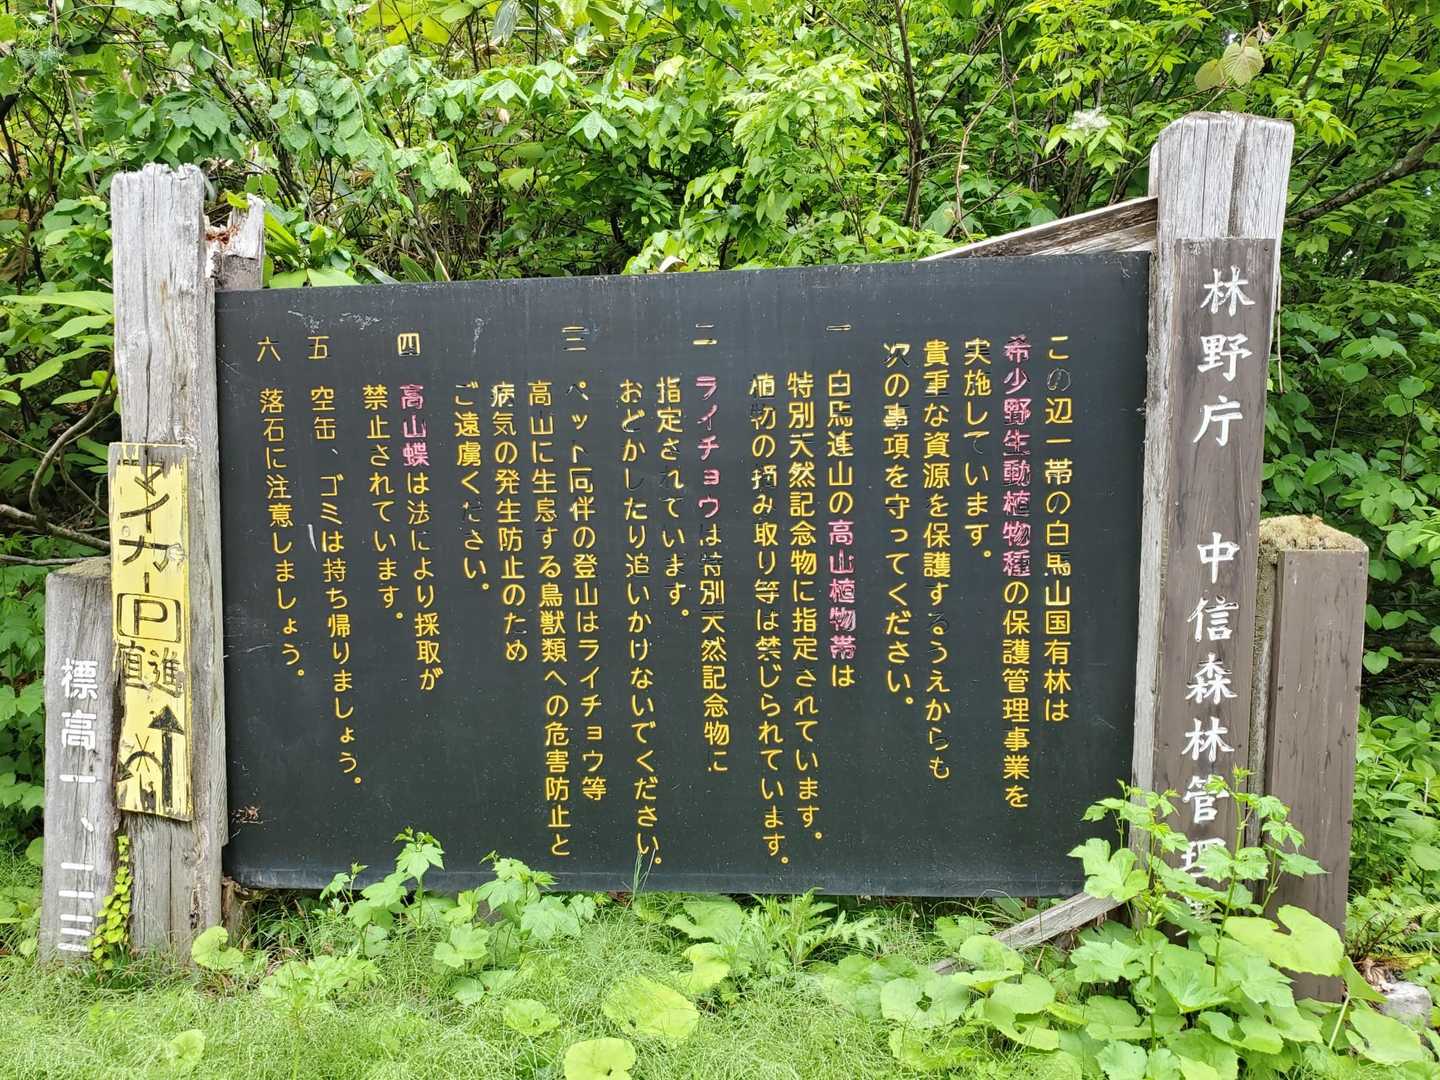 林野庁 中信森林管理
この辺一帯の白馬山国有林は
希少野生動植物種の保護管理事業を
実施しています。
貴重な資源を保護するうえからも
次の事項を守ってください。
一 白馬連山の高山植物帯は
特別天然記念物に指定されています。
植物の摘み取り等は禁じられています。
二 ライチョウは特別天然記念物に
指定されています。
おどかしたり追いかけないでください。
三 ペット同伴の登山はライチョウ等
高山に生息する鳥獣類への危害防止と
病気の発生防止のため
ご遠慮ください。
四 高山蝶は法により採取が
禁止されています。
五 空缶、ゴミは持ち帰りましょう。
六 落石に注意しましょう。
マイカーP
直進
標高一、二三